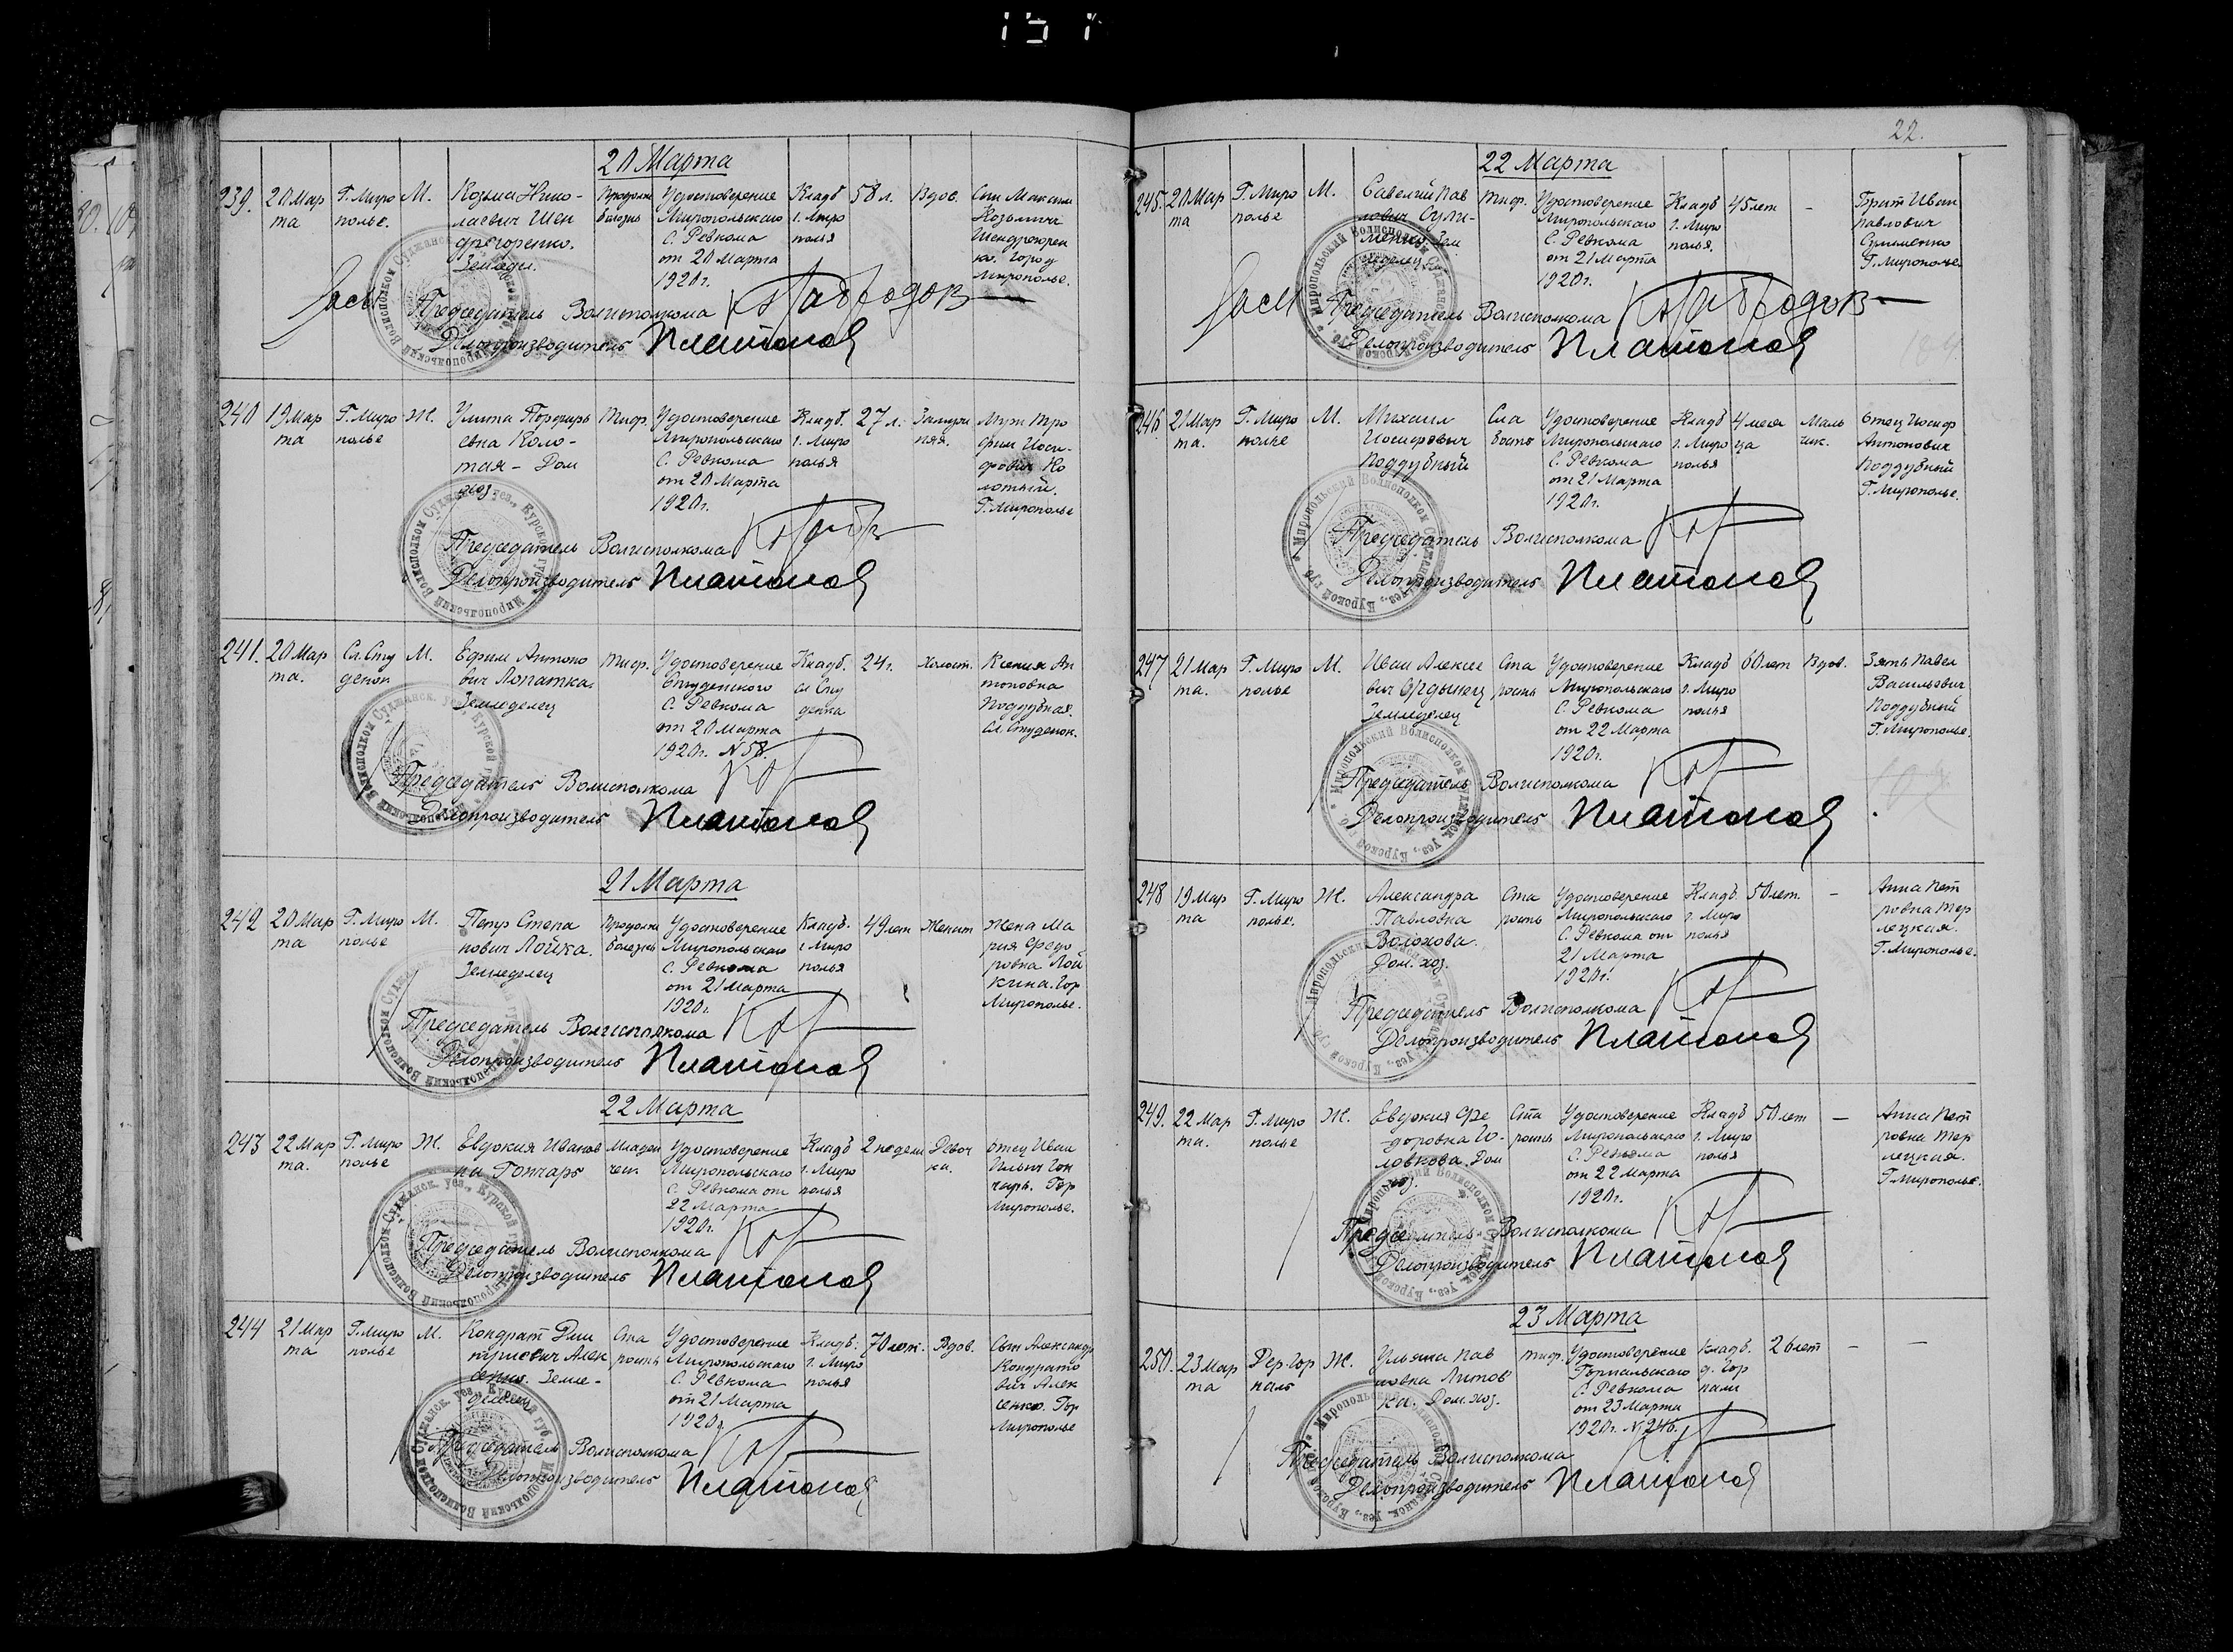 22.
20 Марта
239. 20 Мар та Г. Миро полье. М. Козьма Нико- лаевич Шен дрегоренко. Земледел. Продолж болезнь Удостоверение Миропольскаго С. Ревкома от 20 Марта 1920 г. Кладб г. Миро полья 58 л. Вдов. Сын Максим Козьмич Шендрегорен ко. Город Мирополье.
Председатель Волисполкома
Делопроизводитель Платонов
240 19 Мар та Г. Миро полье Ж. Улита Порфирь евна Коло- тая - Дом хоз. Тиф. Удостоверение Миропольскаго С. Ревкома от 20 Марта 1920 г. Кладб. г. Миро полья 27 л. Замужняя. Муж Тро фим Иоси- фович Ко лотый. Г. Мирополье
Председатель Волисполкома
Делопроизводитель Платонов
241. 20 Мар та. Сл. Сту денок М. Ефим Антоно вич Лопатка. Земледелец Тиф. Удостоверение Студенского С. Ревкома от 20 Марта 1920 г. N 58. Кладб. сл Сту денка 24 г. Холост. Ксения Ан тоновна Поддубная. Сл. Студенок.
Председатель Волисполкома
Делопроизводитель Платонов
21 Марта
242 20 Мар та Г. Миро полье М. Петр Степа нович Лойка. Земледелец Продолж болезнь Удостоверение Миропольскаго С. Ревкома от 21 Марта 1920 г. Кладб. г Миро полья 49 лет Женат Жена Ма рия Федо ровна Лой кина. Гор Мирополье.
Председатель Волисполкома
Делопроизводитель Платонов
22 Марта
243 22 Мар та. Г. Миро полье Ж. Евдокия Иванов на Гончарь Младен ческ. Удостоверение Миропольскаго С. Ревкома от 22 Марта 1920 г. Кладб г. Миро полья 2 недели Девоч ка. Отец Иван Ильич Гон чарь. Гор Мирополье.
Председатель Волисполкома
Делопроизводитель Платонов
244 21 Мар та Г. Миро полье М. Кондрат Дми триевич Алек сенко. Земле- делец Ста рость Удостоверение Миропольскаго С. Ревкома от 21 Марта 1920 г. Кладб. г. Миро полья 70 лет. Вдов. Сын Александр Кондрато вич Алек сенко. Гор Мирополье
Председатель Волисполкома
Делопроизводитель Платонов
22 Марта
245. 20 Мар та Г. Миро полье М. Савелий Пав лович Сули- менко. Зем леделец Тиф. Удостоверение Миропольскаго С. Ревкома от 21 Марта 1920 г. Кладб г. Миро полья. 45 лет - Брат Иван Павлович Сулименко Г. Мирополье.
Председатель Волисполкома
Делопроизводитель Платонов
246. 21 Мар та. Г. Миро полье М. Михаил Иосифович Поддубный Сла бость Удостоверение Миропольскаго С. Ревкома от 21 Марта 1920 г. Кладб г. Миро полья 4 меся ца Маль чик. Отец Иосиф Антонович Поддубный Г. Мирополье.
Председатель Волисполкома
Делопроизводитель Платонов
247 21 Мар та. Г. Миро полье М. Иван Алексее вич Ордынец Земледелец Ста рость Удостоверение Миропольскаго С. Ревкома от 22 Марта 1920 г. Кладб г. Миро полья 60 лет Вдов. Зять Павел Васильевич Поддубный Г. Мирополье.
Председатель Волисполкома
Делопроизводитель Платонов
248 19 Мар та Г. Миро полье. Ж. Александра Павловна Волохова. Дом. хоз. Ста рость Удостоверение Миропольскаго С. Ревкома от 21 Марта 1920 г. Кладб. г. Миро полья 50 лет. - Анна Пет ровна Тер лецкая. Г. Мирополье.
Председатель Волисполкома
Делопроизводитель Платонов
249. 22 Мар та. Г. Миро полье Ж. Евдокия Фе доровна Дом хоз. Ста рость Удостоверение Миропольскаго С. Ревкома от 22 Марта 1920 г. Кладб г. Миро полья 50 лет - Анна Пет ровна Тер лецкая. Г. Мирополье.
Председатель Волисполкома
Делопроизводитель Платонов
23 Марта
250. 23 Мар та Дер. Гор наль Ж. Ульяна Пав ловна Литов ка. Дом. хоз. Тиф. Удостоверение Горнальскаго С. Ревкома от 23 Марта 1920 г. N 246. Кладб. д. Гор нали 26 лет - -
Председатель Волисполкома
Делопроизводитель Платонов